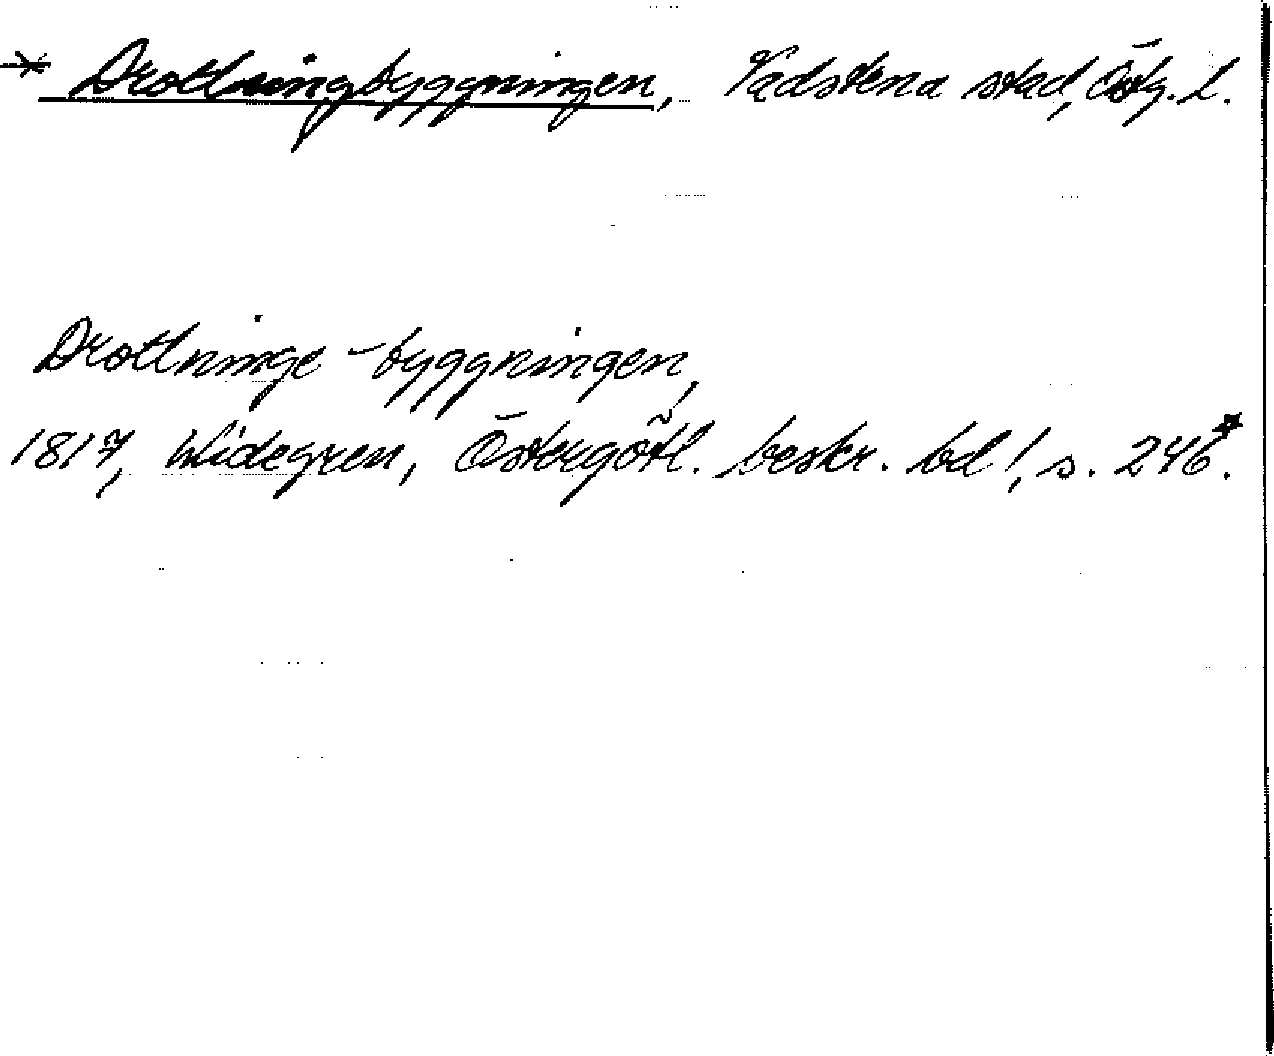 * Drottningbyggningen, Vadstena stad, Östg. l.
Drottninge-byggningen,
1817, Widegren, Östergötl. beskr. bd 1, s. 246*.